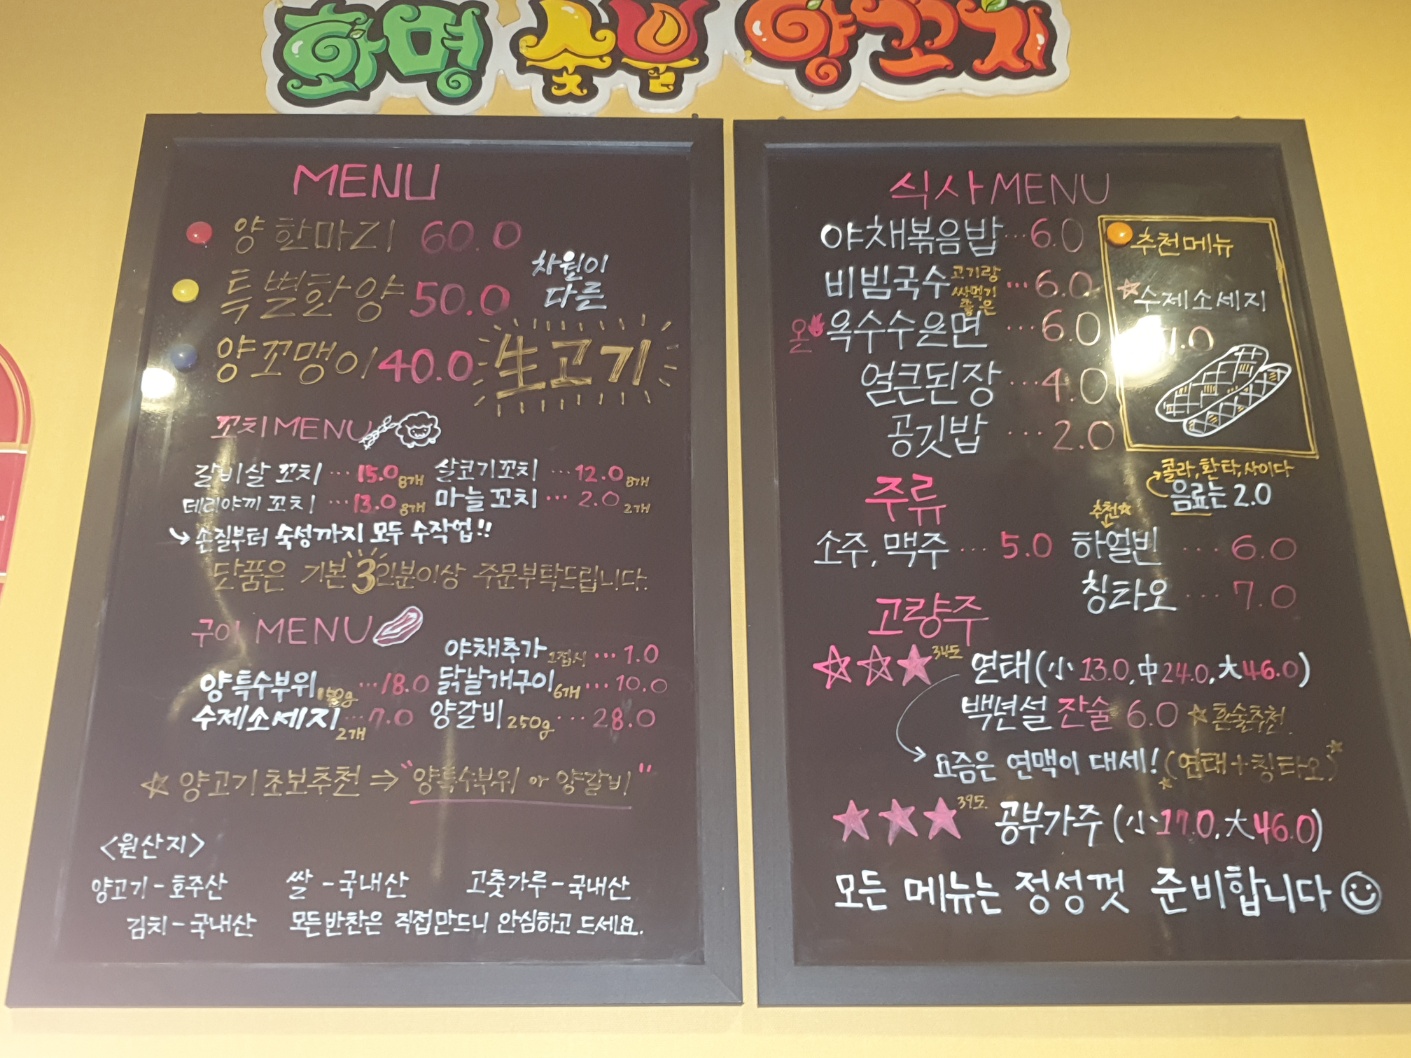 화명 숯불 양꼬치
MENU
양 한마리 60.0
특별한 양 50.0
양꼬맹이 40.0
차원이
다른
生고기
꼬치 MENU
갈비살 꼬치 ··· 15.0 8개 살코기꼬치 ··· 12.0 8개
데리야끼 꼬치 ··· 13.0 8개 마늘꼬치 ··· 2.0 2개
손질부터 숙성까지 모두 수작업!!
단품은 기본 3인분이상 주문부탁드립니다.
구이 MENU
야채추가 1접시 ··· 1.0
양특수부위 ··· 18.0 닭날개구이 6개 ··· 10.0
수제소세지 2개 ··· 7.0 양갈비 250g ··· 28.0
☆ 양고기 초보추천 ⇒ "양특수부위 or 양갈비"
<원산지>
양고기 - 호주산 쌀 - 국내산 고춧가루 - 국내산
김치 - 국내산 모든반찬은 직접만드니 안심하고 드세요.
식사 MENU
야채볶음밥 ··· 6.0
비빔국수 고기랑 싸먹기 좋은 ··· 6.0
옥수수온면 ··· 6.0
얼큰된장 ··· 4.0
공깃밥 ··· 2.0
추천메뉴
☆수제소세지
콜라, 환타, 사이다
음료는 2.0
주류
소주, 맥주 ··· 5.0
추천☆
하얼빈 ··· 6.0
칭타오 ··· 7.0
고량주
☆☆★ 34도 연태 (小 13.0, 中 24.0, 大 46.0)
백년설 잔술 6.0 ★혼술추천.
요즘은 연맥이 대세! (연태+칭타오)
★★★ 39도 공부가주 (小 17.0, 大 46.0)
모든 메뉴는 정성껏 준비합니다